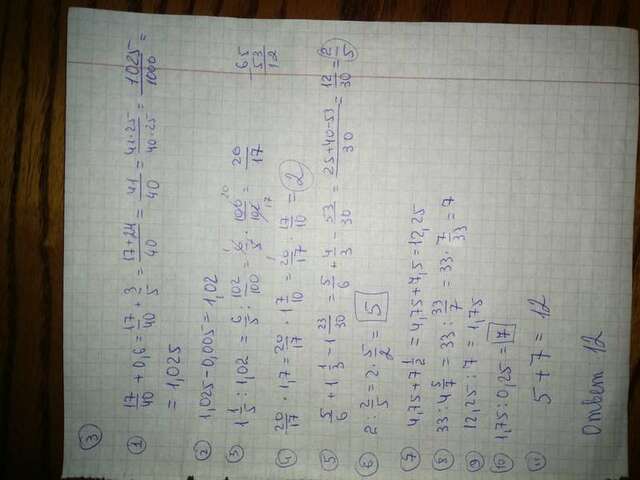 ③
① 17/40 + 0,6 = 17/40 + 3/5 = 17+24/40 = 41/40 = 41·25/40·25 = 1025/1000 =
= 1,025
② 1,025 - 0,005 = 1,02
③ 1 1/5 : 1,02 = 6/5 : 102/100 = 6/5 · 100/102 = 20/17
65
- 53
12
④ 20/17 · 1,7 = 20/17 · 1 7/10 = 20/17 · 17/10 = 2
⑤ 5/6 + 1 1/3 - 1 23/30 = 5/6 + 4/3 - 53/30 = 25+40-53/30 = 12/30 = 2/5
⑥ 2 : 2/5 = 2 · 5/2 = 5
⑦ 4,75 + 7 1/2 = 4,75 + 7,5 = 12,25
⑧ 33 : 4 5/7 = 33 : 33/7 = 33 · 7/33 = 7
⑨ 12,25 : 7 = 1,75
⑩ 1,75 : 0,25 = 7
⑪ 5 + 7 = 12
Ответ 12